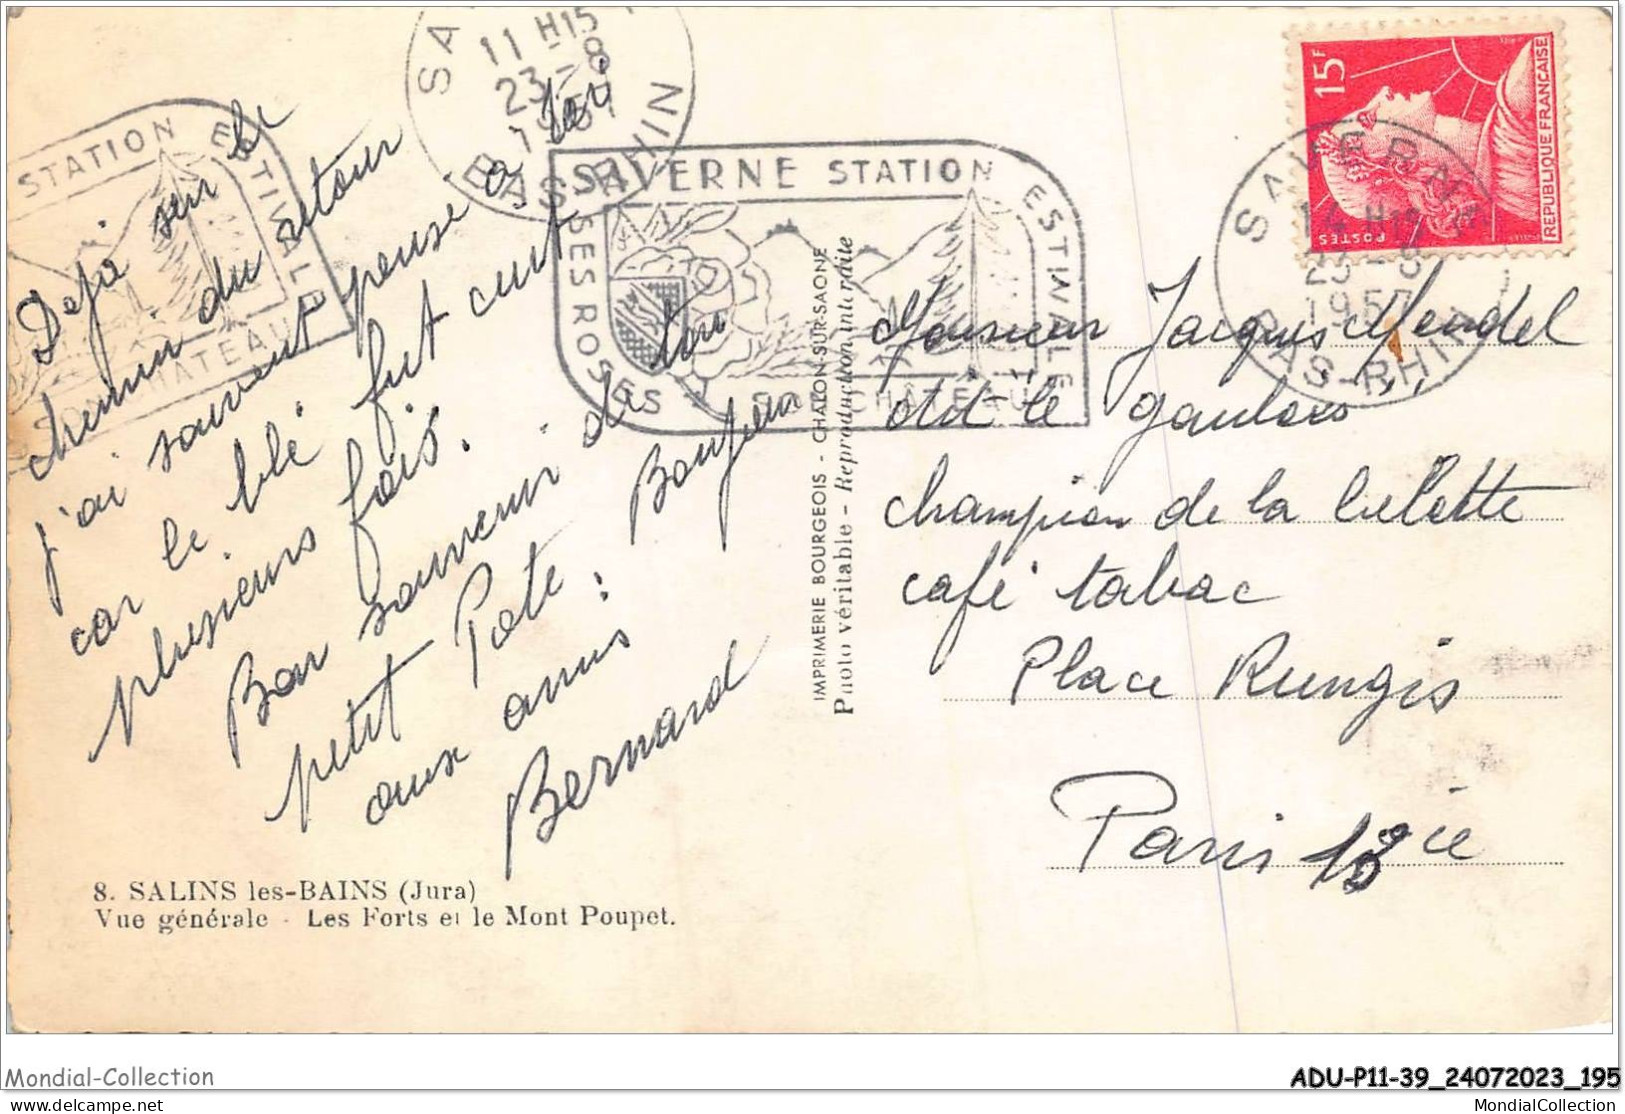 Déjà sur le
chemin du retour
j'ai souvent pensé à toi
car le blé fut cuit
plusieurs fois.
Bon souvenir de ton
petit Pote : Bonjour
aux amis
Bernard
8. SALINS les-BAINS (Jura)
Vue générale - Les Forts et le Mont Poupet.
IMPRIMERIE BOURGEOIS - CHALON-SUR-SAONE
Photo véritable - Reproduction interdite
STATION ESTIVALE
SON CHÂTEAU
11 H15
23 - 8
1957
BAS-RHIN
SAVERNE STATION ESTIVALE
SES ROSES
SON CHÂTEAU
15F
POSTES
REPUBLIQUE FRANÇAISE
SAVERNE
14 H15
23 - 8
1957
BAS-RHIN
Monsieur Jacques Mendel
dit "le gaulois"
champion de la belotte
café tabac
Place Rungis
Paris 13 ie
Mondial-Collection
ADU-P11-39_24072023_195
delcampe.net
MondialCollection